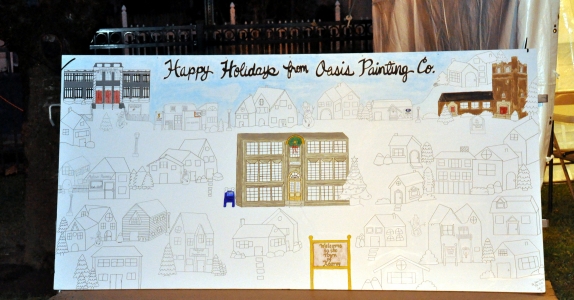 Happy Holidays from Oasis Painting Co.
Welcome
to the